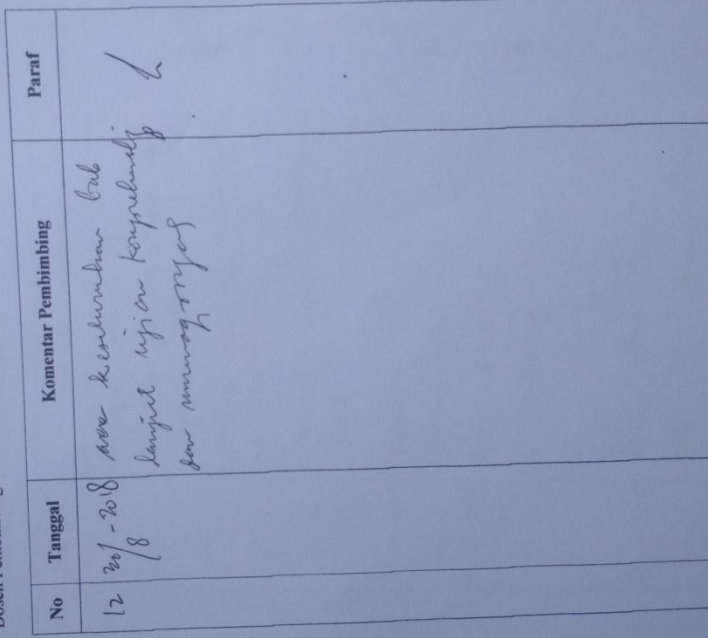 Dosen
No Tanggal Komentar Pembimbing Paraf
12 30/8-2018 acc keseluruhan bab
lanjut ujian komprehensif
dan munaqosyas